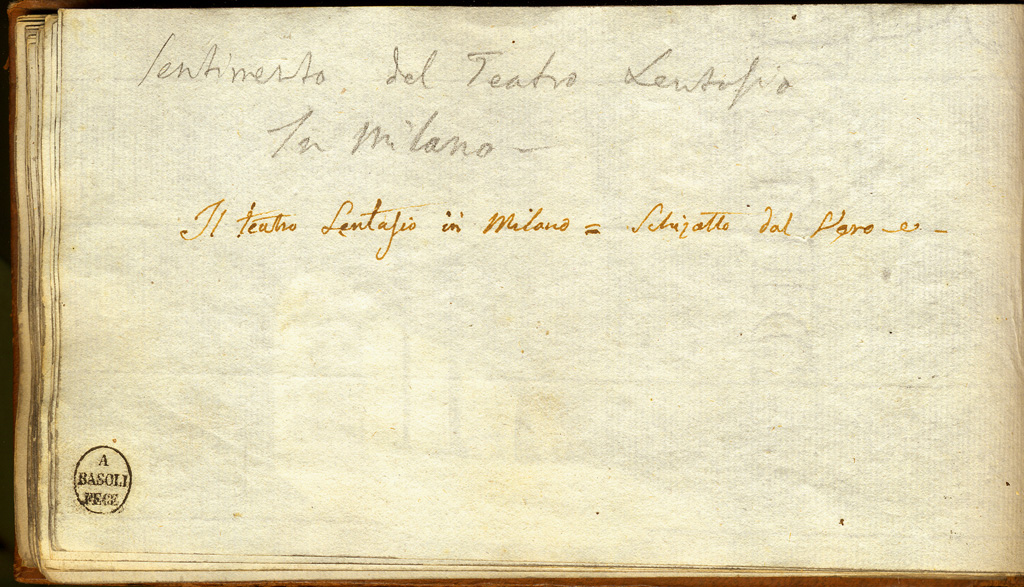 Sentimento del Teatro Lentasio
In Milano –
Il teatro Lentasio in Milano = Schizatto dal Vero – e –
A
BASOLI
FECE